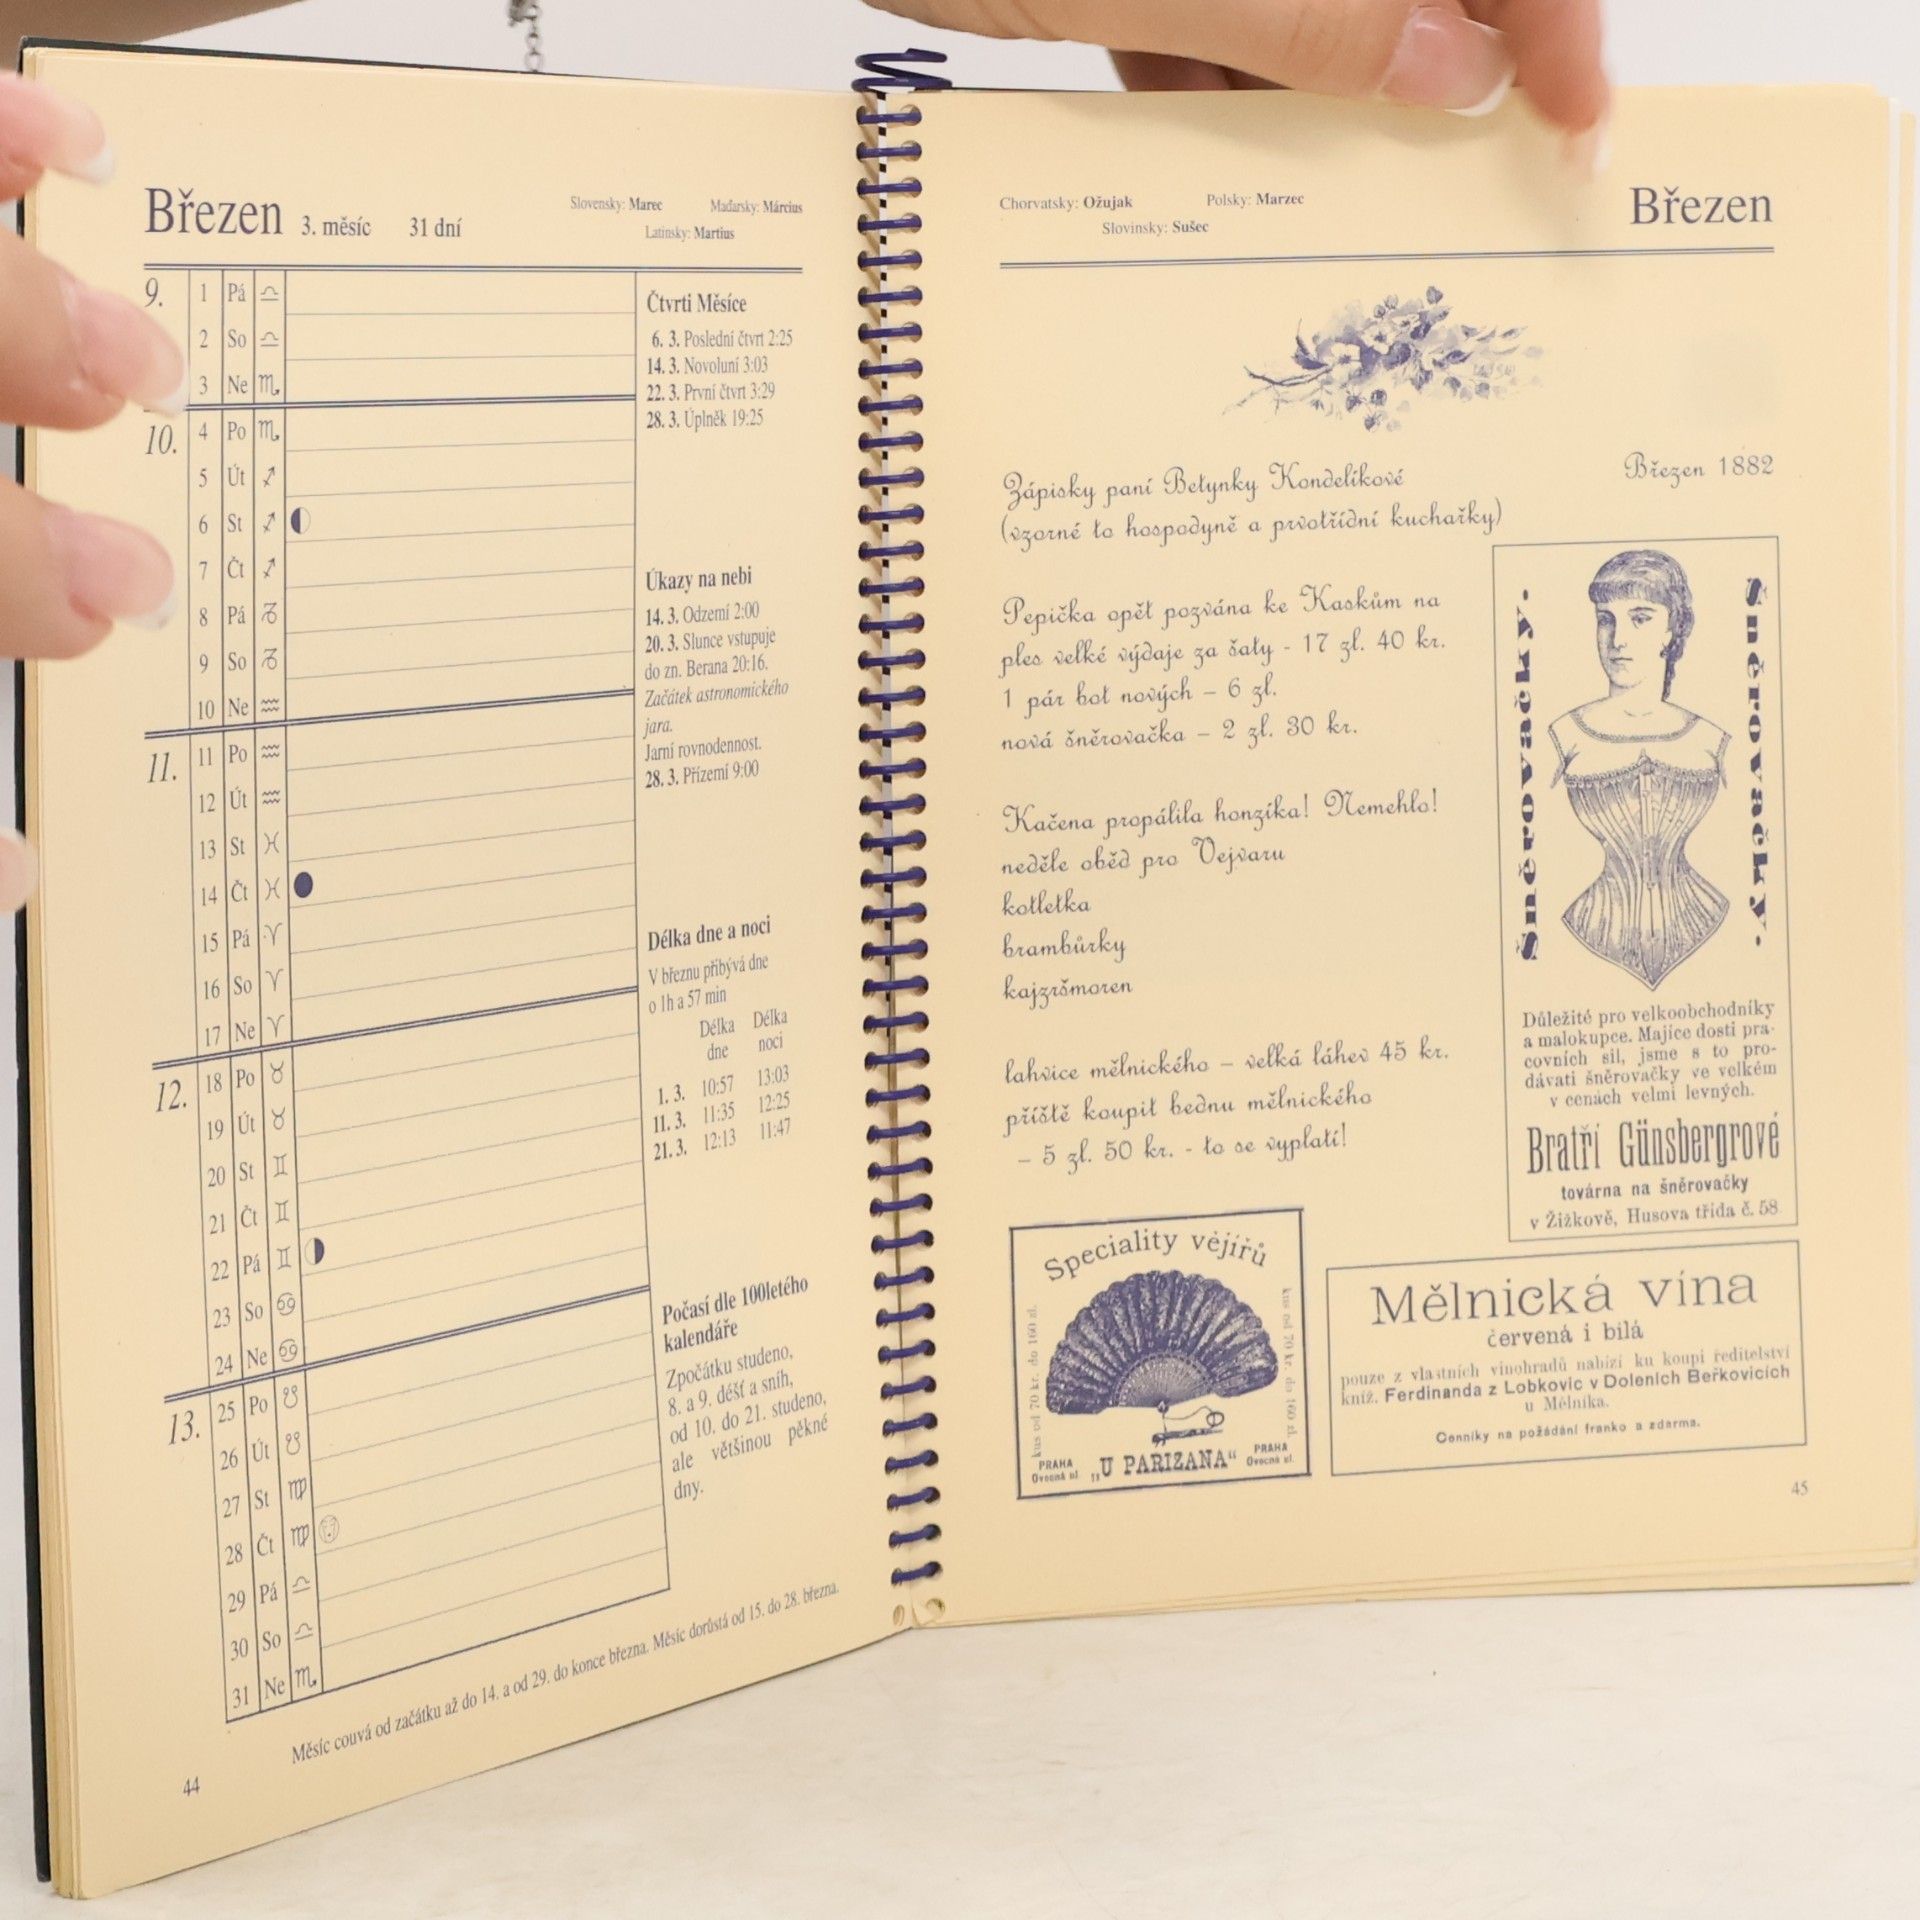 Březen 3. měsíc 31 dní
Slovensky: Marec Maďarsky: Március
Latinsky: Martius
9. 1 Pá ♎
2 So ♎
3 Ne ♏
10. 4 Po ♏
5 Út ♐
6 St ♐
7 Čt ♐
8 Pá ♑
9 So ♑
10 Ne ♒
11. 11 Po ♒
12 Út ♒
13 St ♓
14 Čt ♓
15 Pá ♈
16 So ♈
17 Ne ♈
12. 18 Po ♉
19 Út ♉
20 St ♊
21 Čt ♊
22 Pá ♊
23 So ♋
24 Ne ♋
13. 25 Po ☋
26 Út ☋
27 St ♍
28 Čt ♍
29 Pá ♎
30 So ♎
31 Ne ♏
Čtvrti Měsíce
6. 3. Poslední čtvrt 2:25
14. 3. Novoluní 3:03
22. 3. První čtvrt 3:29
28. 3. Úplněk 19:25
Úkazy na nebi
14. 3. Odzemí 2:00
20. 3. Slunce vstupuje
do zn. Berana 20:16.
Začátek astronomického
jara.
Jarní rovnodennost.
28. 3. Přízemí 9:00
Délka dne a noci
V březnu přibývá dne
o 1h a 57 min
Délka Délka
dne noci
1. 3. 10:57 13:03
11. 3. 11:35 12:25
21. 3. 12:13 11:47
Počasí dle 100letého
kalendáře
Zpočátku studeno,
8. a 9. déšť a sníh,
od 10. do 21. studeno,
ale většinou pěkné
dny.
Měsíc couvá od začátku až do 14. a od 29. do konce března. Měsíc dorůstá od 15. do 28. března.
44
Chorvatsky: Ožujak Polsky: Marzec
Slovinsky: Sušec
Březen
Březen 1882
Zápisky paní Betynky Kondelíkové
(vzorné to hospodyně a prvotřídní kuchařky)
Pepička opět pozvána ke Kaskům na
ples velké výdaje za šaty - 17 zl. 40 kr.
1 pár bot nových – 6 zl.
nová šněrovačka – 2 zl. 30 kr.
Kačena propálila honzíka! Nemehlo!
neděle oběd pro Vejvaru
kotletka
brambůrky
kajzršmoren
lahvice mělnického – velká láhev 45 kr.
příště koupit bednu mělnického
– 5 zl. 50 kr. - to se vyplatí!
Šněrovačky.
Šněrovačky.
Důležité pro velkoobchodníky
a malokupce. Majíce dosti pra-
covních sil, jsme s to pro-
dávati šněrovačky ve velkém
v cenách velmi levných.
Bratří Günsbergrové
továrna na šněrovačky
v Žižkově, Husova třída č. 58.
Speciality vějířů
kus od 70 kr. do 160 zl.
kus od 70 kr. do 160 zl.
PRAHA
Ovocná ul.
„U PARIZANA“
PRAHA
Ovocná ul.
Mělnická vína
červená i bilá
pouze z vlastních vinohradů nabízí ku koupi ředitelství
kníž. Ferdinanda z Lobkovic v Dolenich Beřkovicích
u Mělníka.
Cenníky na požádání franko a zdarma.
45